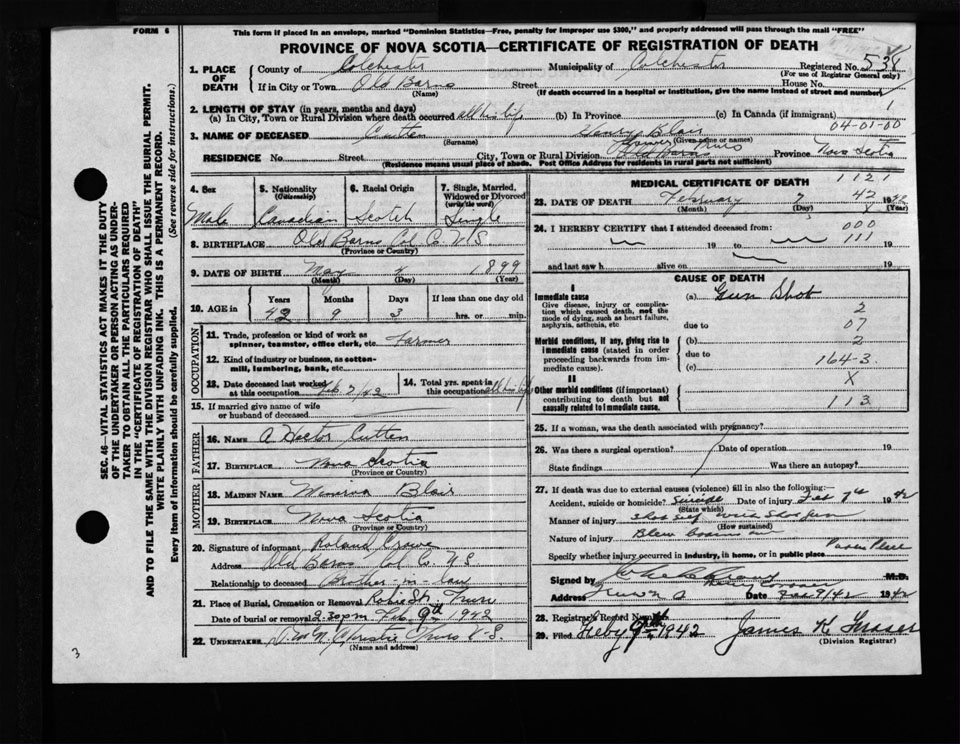 FORM 6
This form if placed in an envelope, marked "Dominion Statistics—Free, penalty for improper use $300," and properly addressed will pass through the mail "FREE"
PROVINCE OF NOVA SCOTIA—CERTIFICATE OF REGISTRATION OF DEATH
SEC. 46—VITAL STATISTICS ACT MAKES IT THE DUTY
OF THE UNDERTAKER OR PERSON ACTING AS UNDER-
TAKER TO OBTAIN ALL THE PARTICULARS REQUIRED
IN THE "CERTIFICATE OF REGISTRATION OF DEATH"
AND TO FILE THE SAME WITH THE DIVISION REGISTRAR WHO SHALL ISSUE THE BURIAL PERMIT.
WRITE PLAINLY WITH UNFADING INK. THIS IS A PERMANENT RECORD.
Every item of information should be carefully supplied. (See reverse side for instructions.)
1. PLACE OF DEATH
County of Colchester Municipality of Colchester Registered No. 538
(For use of Registrar General only)
If in City or Town Old Barns Street House No.
(Name) (If death occurred in a hospital or institution, give the name instead of street and number)
2. LENGTH OF STAY (in years, months and days)
(a) In City, Town or Rural Division where death occurred all his life (b) In Province (c) In Canada (if immigrant)
1
04-01-60
3. NAME OF DECEASED Cutten Henry Blair
(Surname) (Given name or names)
RESIDENCE No. Street City, Town or Rural Division Old Barns Province Nova Scotia
(Residence means usual place of abode. Post Office Address for residents in rural parts not sufficient)
4. Sex
Male
5. Nationality
(Citizenship)
Canadian
6. Racial Origin
Scotch
7. Single, Married, Widowed or Divorced
(write the word)
Single
8. BIRTHPLACE Old Barns Col. Co. N.S.
(Province or Country)
9. DATE OF BIRTH May 4 1899
(Month) (Day) (Year)
10. AGE in
Years Months Days If less than one day old
42 9 3 hrs. or min.
OCCUPATION
11. Trade, profession or kind of work as
spinner, teamster, office clerk, etc. Farmer
12. Kind of industry or business, as cotton-
mill, lumbering, bank, etc.
13. Date deceased last worked
at this occupation Feb 7/42
14. Total yrs. spent in
this occupation all his life
15. If married give name of wife
or husband of deceased
FATHER
16. NAME A Hector Cutten
17. BIRTHPLACE Nova Scotia
(Province or Country)
MOTHER
18. MAIDEN NAME Blair
19. BIRTHPLACE Nova Scotia
(Province or Country)
20. Signature of informant Roland Crowe
Address Old Barns Col. Co. N.S.
Relationship to deceased Brother-in-law
21. Place of Burial, Cremation or Removal Robie St. Truro
Date of burial or removal 2.30pm Feb. 9th 1942
22. UNDERTAKER Christie Truro N.S.
(Name and address)
MEDICAL CERTIFICATE OF DEATH
1121
23. DATE OF DEATH February 7 42 19
(Month) (Day) (Year)
X
24. I HEREBY CERTIFY that I attended deceased from:
000
19 to 111 19
and last saw h alive on 19
CAUSE OF DEATH
I
Immediate cause
Give disease, injury or complica-
tion which caused death, not the
mode of dying, such as heart failure,
asphyxia, asthenia, etc
(a) Gun Shot
2
due to 07
Morbid conditions, if any, giving rise to
immediate cause (stated in order
proceeding backwards from im-
mediate cause).
(b) 2
due to 164-3.
(c)
II
Other morbid conditions (if important)
contributing to death but not
causally related to immediate cause.
X
113
25. If a woman, was the death associated with pregnancy?
26. Was there a surgical operation? Date of operation 19
State findings Was there an autopsy?
27. If death was due to external causes (violence) fill in also the following:—
Accident, suicide or homicide? Suicide Date of injury Feb 7th 1942
(State which)
Manner of injury Shot self with Shot gun
(How sustained)
Nature of injury Blew
Specify whether injury occurred in industry, in home, or in public place
Signed by M.D.
Address Truro Date Feb 9/42 1942
28. Registrar's Record Number
29. Filed Feby 9th 1942 James K Fraser
(Division Registrar)
3